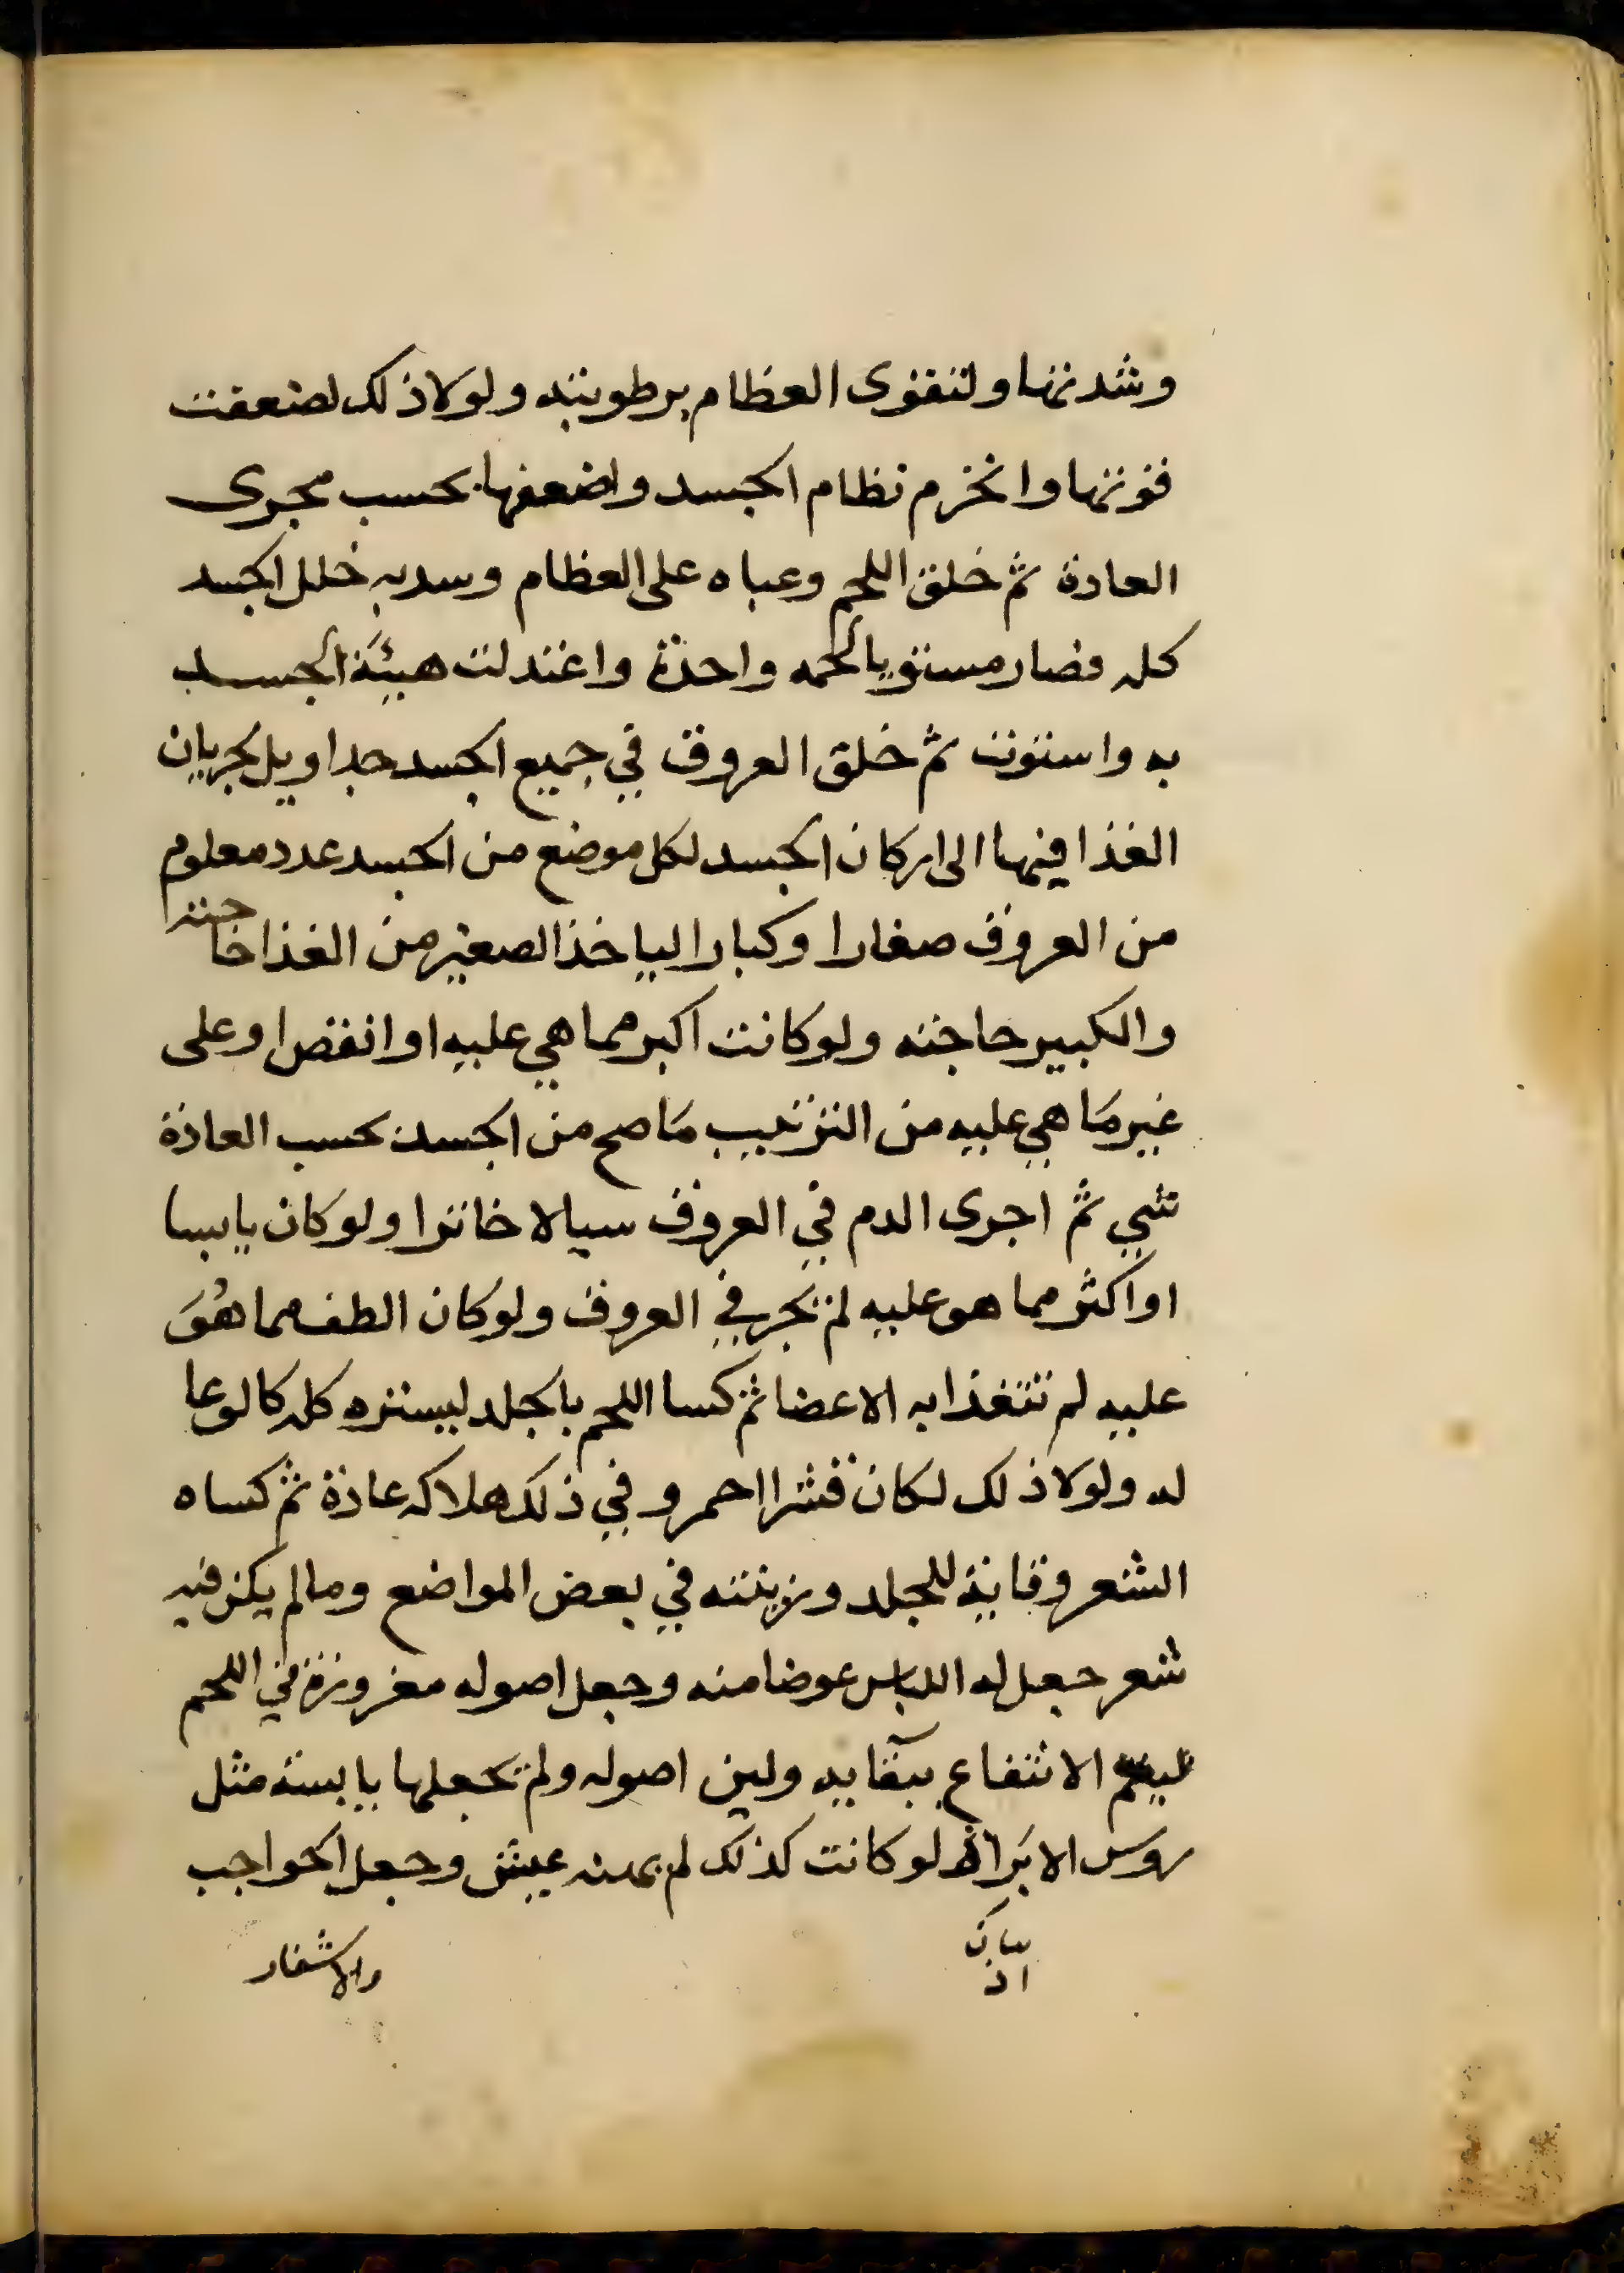 وشدتها ولتقوى العظام برطوبته ولولا ذلك لضعفت
قوتها وانخرم نظام الجسد واضعفها بحسب مجرى
العادة ثم خلق اللحم وعباه على العظام وسد به خلل الجسد
كله فصار مستويا لحمه واحدة واعتدلت هيئة الجسد
به واستوت ثم خلق العروق في جميع الجسد جداويل لجريان
الغذا فيها الى اركان الجسد لكل موضع من الجسد عدد معلوم
من العروق صغارا وكبارا ليا خذ الصغير من الغذا حاجته
والكبير حاجته ولو كانت اكبر مما هي عليه او انقص او على
غير ما هي عليه من الترتيب ما صح من الجسد بحسب العادة
شي ثم اجرى الدم في العروق سيالا خاثرا ولو كان يابسا
او اكثر مما هو عليه لم تجر في العروق ولو كان الطف مما هو
عليه لم تتغذا به الاعضا ثم كسا اللحم بالجلد ليستره كله كالوعا
له ولولا ذلك لكان قشرا احمر وفي ذلك هلاكه عادة ثم كساه
الشعر وقاية للجلد وزينته في بعض المواضع وما لم يكن فيه
شعر جعل له اللباس عوضا منه وجعل اصوله مغروزة في اللحم
ليعم الانتفاع ببقايه ولين اصوله ولم تجعلها يابسة مثل
روس الابر اذ لو كانت كذلك لم يهنه عيش وجعل الحواجب
بيان
اذ
والاشفار